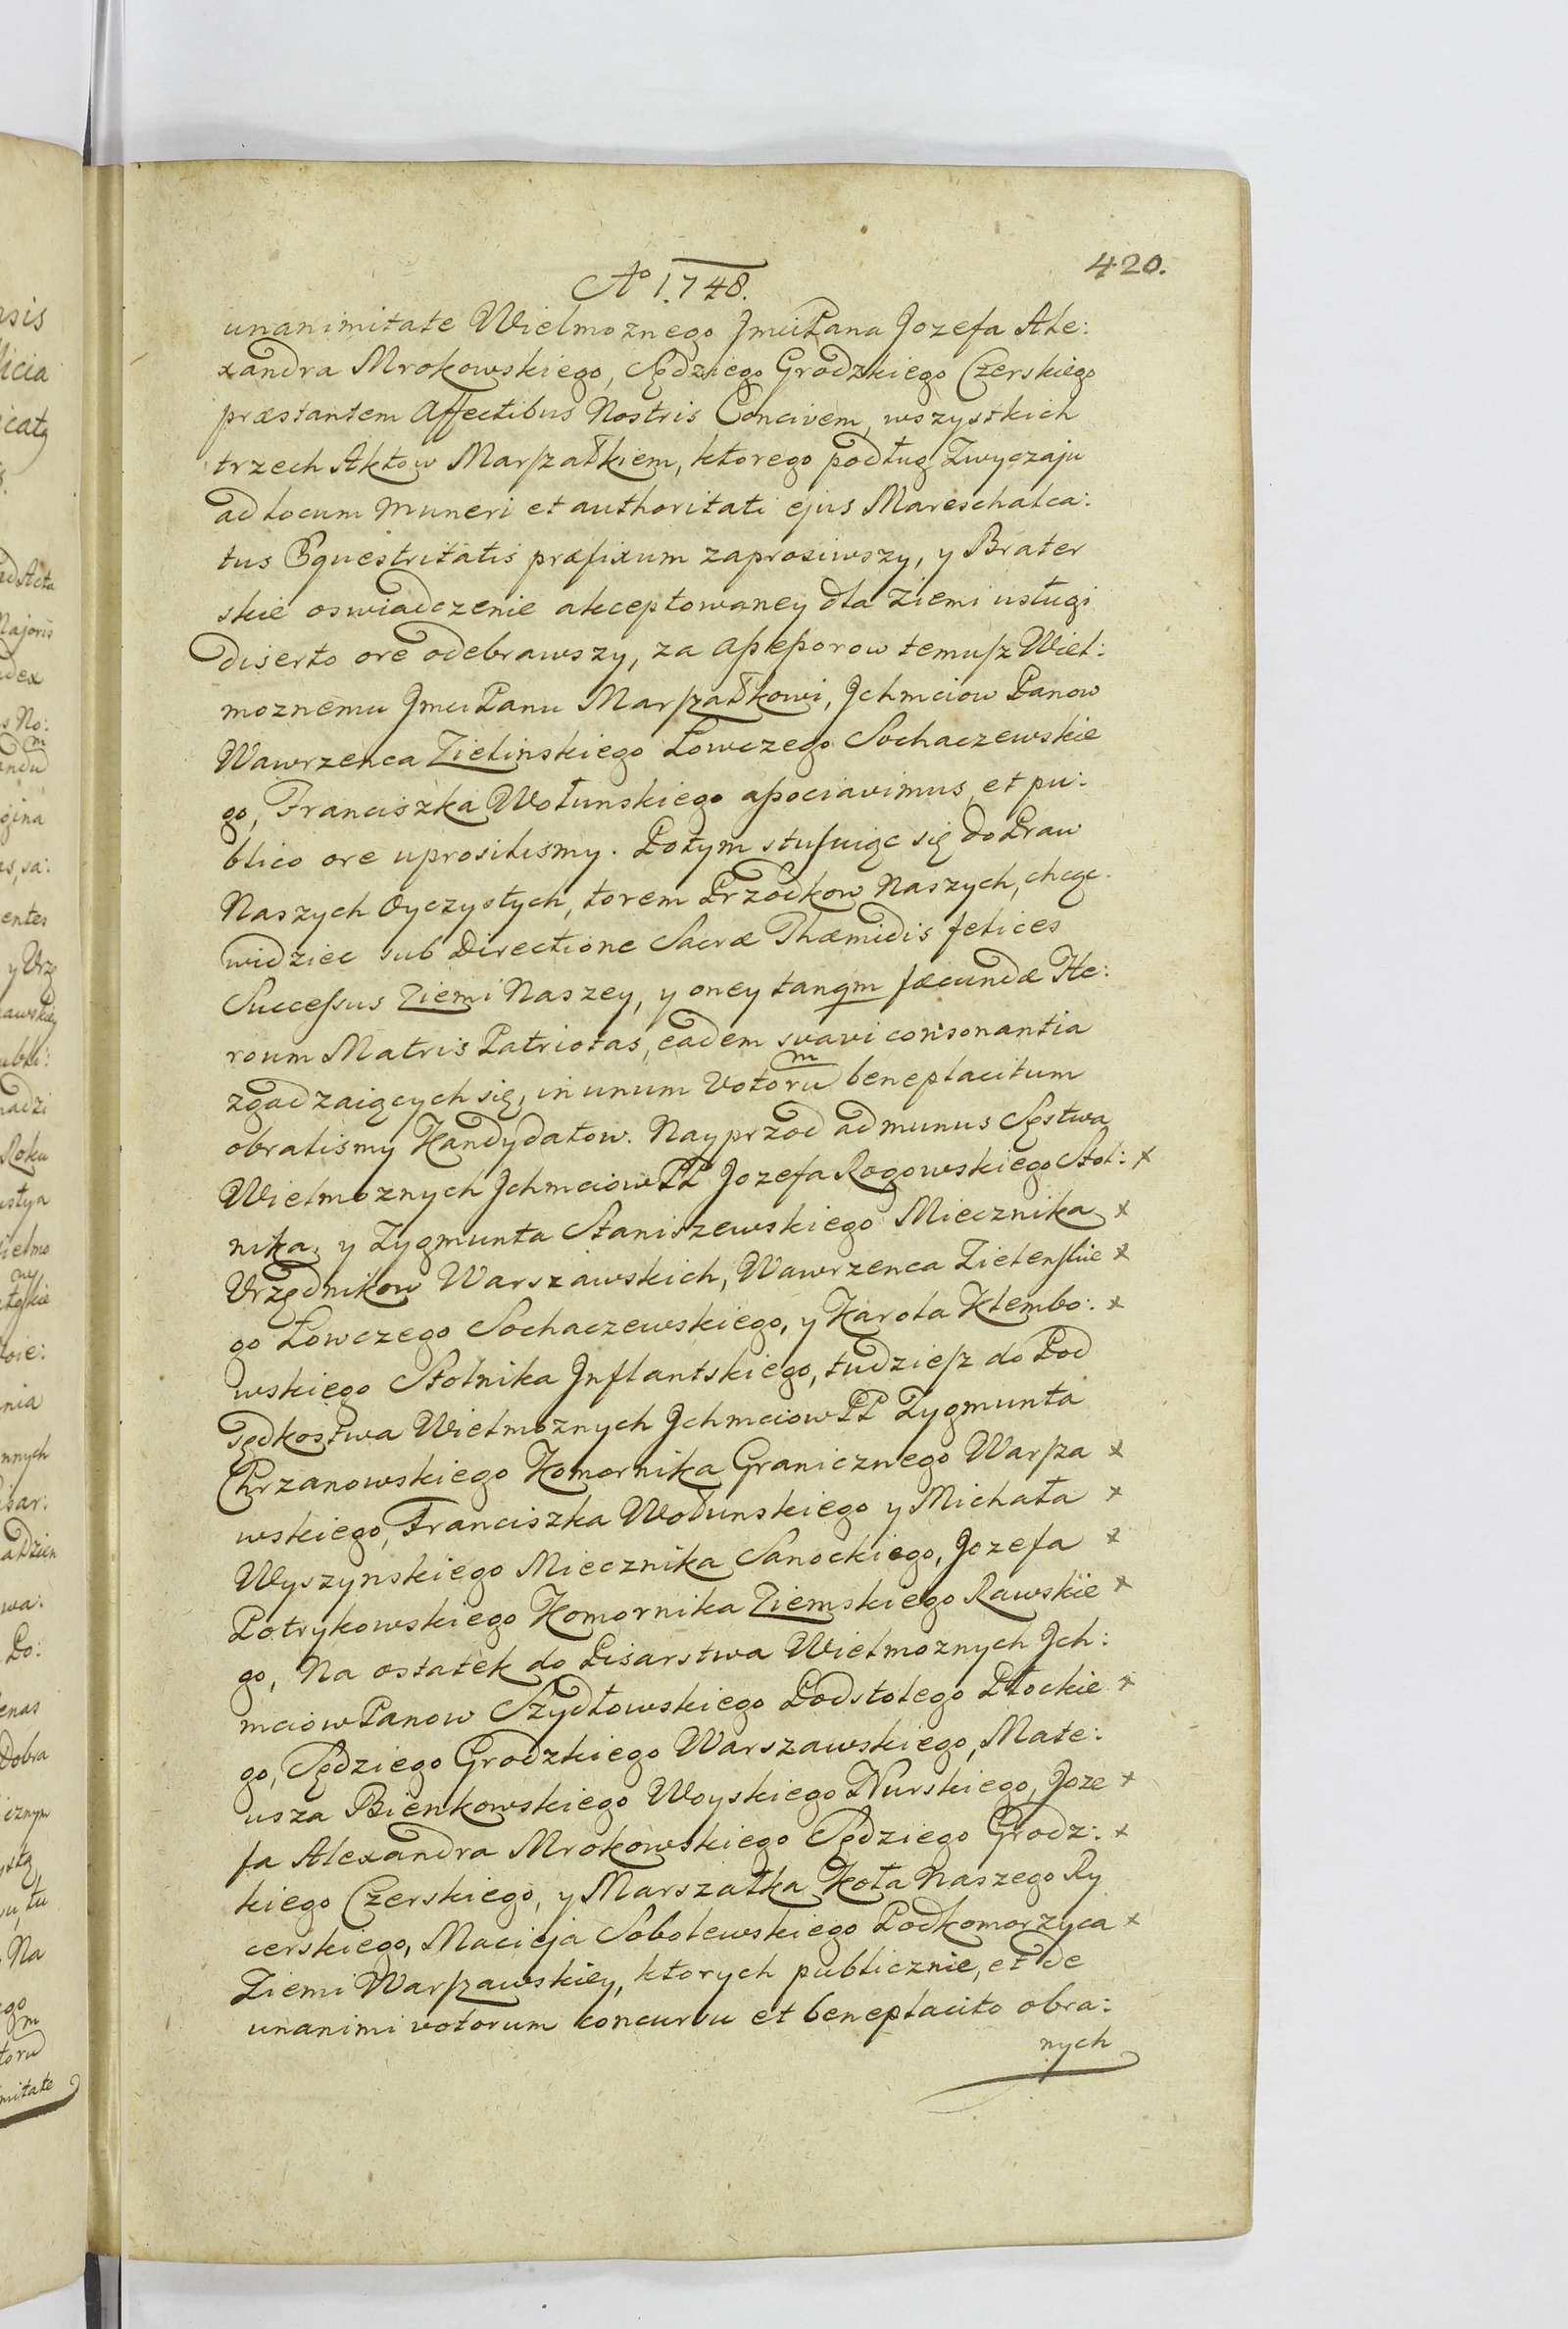 420.
Ao 1748.
unanimitate Wielmoznego JmciPana Jozefa Ale:
xandra Mrokowskiego, Sędziego Grodzkiego Czerskiego
præstantem Affectibus Nostris Concivem, wszystkich
trzech Aktow Marszałkiem, ktorego podług Zwyczaju
ad locum muneri et authoritati ejus Mareschalca:
tus Equestritatis præfixum zaprosiwszy, y Brater
skie oswiadczenie akceptowaney dla Ziemi usługi
diserto ore odebrawszy, za Assessorow temusz Wiel:
moznemu Jmci Panu Marszałkowi, Jchmciow Panow
Wawrzenca Zielinskiego Łowczego Sochaczewskie
go, Franciszka Wołunskiego associavimus et pu:
blico ore uprosilismy. Potym stosuiąc się do Praw
Naszych Oyczystych, torem Przodkow Naszych, chcąc
widziec sub Directione Sacræ Thæmidis felices
Successus Ziemi Naszey, y oney tanqm fæcundæ He:
roum Matris Patriotas, eadem svavi consonantia
zgadzaiących się, in unum Votorum beneplacitum
obralismy Kandydatow. Nayprzod ad munus Sęstwa
Wielmoznych Jchmciow PP Jozefa Rogowskiego Stol: x
nika, y Zygmunta Staniszewskiego Miecznika x
Urzędnikow Warszawskich, Wawrzenca Zielenskie x
go Łowczego Sochaczewskiego, y Karola Klembo: x
wskiego Stolnika Jnflantskiego, tudziesz do Pod
sędkostwa Wielmoznych Jchmciow PP Zygmunta
Chrzanowskiego Komornika Granicznego Warsza x
wskiego, Franciszka Wołunskiego y Michała x
Wyszynskiego Miecznika Sanockiego, Jozefa x
Potrykowskiego Komornika Ziemskiego Rawskie x
go, Na ostatek do Pisarstwa Wielmoznych Jch:
mciow Panow Szydłowskiego Podstolego Płockie x
go, Sędziego Grodzkiego Warszawskiego, Mate:
usza Bienkowskiego Woyskiego Nurskiego, Joze x
fa Alexandra Mrokowskiego Sędziego Grodz: x
kiego Czerskiego, y Marszałka Koła Naszego Ry
cerskiego, Macieja Sobolewskiego Podkomorzyca x
Ziemi Warszawskiey, ktorych publicznie, et de
unanimi votorum concursu et beneplacito obra:
nych